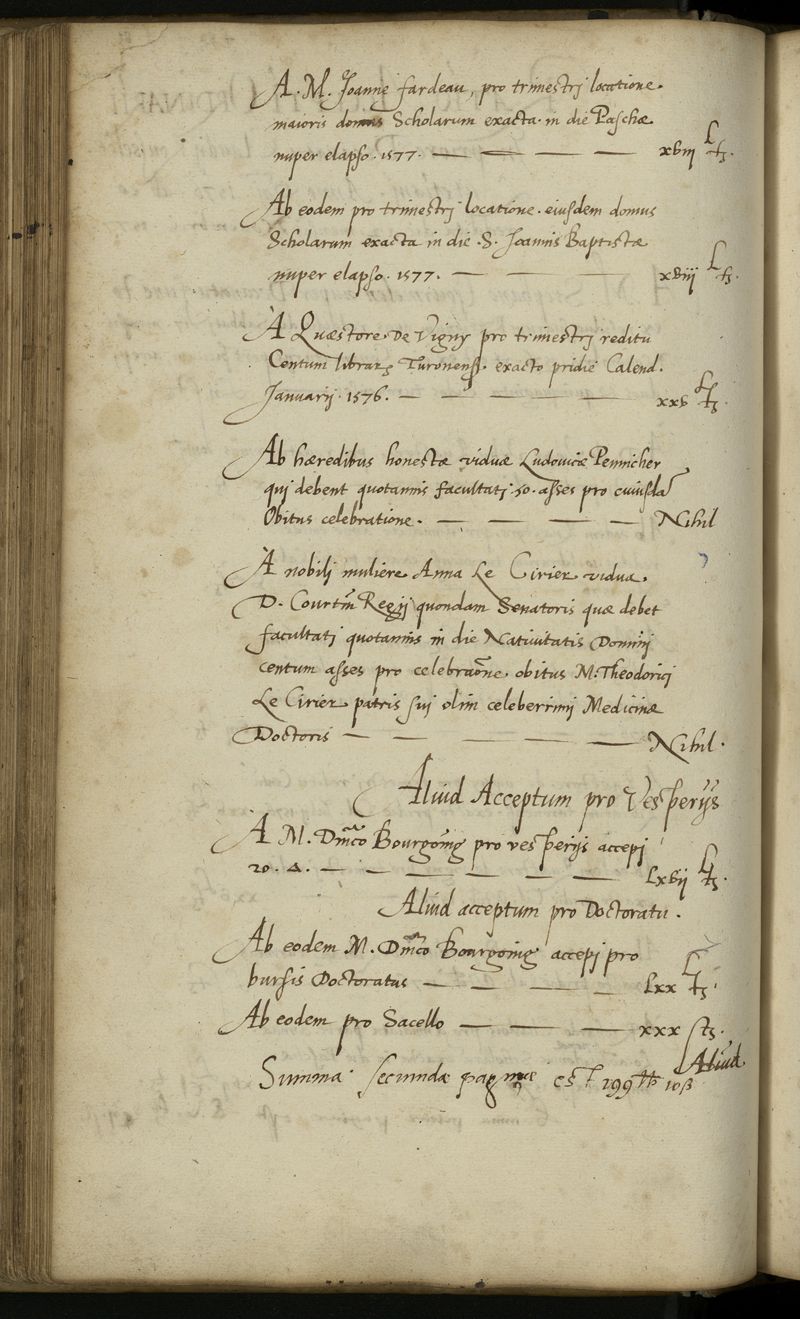 A. M. Joanne fardeau, pro trimestrj locatione.
maioris domus Scholarum exacta. in die Paschæ
nuper elapso. 1577. — — — — xviij L ts.
Ab eodem pro trimestrj locatione. eiusdem domus
Scholarum exacta in die .S. Joannis Baptistæ
nuper elapso. 1577. — — — xviij L ts.
A Quæstore. De Vigny pro trimestrj reditu
Centum librarȝ Turonens. exacto pridie Calend.
Januarij. 1576. — — — — — xxv L ts.
Ab hæredibus honestæ viduæ Ludovicæ Pennicher
quj debent quotannis facultatj. 50. asses pro cuiusdā
Obitus celebratione. — — — — Nihil
A nobilj muliere Anna Le Cirier vidua.
D. Courtin Regij quondam Senatoris quæ debet
facultatj quotannis in die Nativitatis Dominj
centum asses pro celebraōne. obitus M. Theodoricj
Le Cirier patris suj olim celeberrimj Medicinæ
Doctoris — — — — Nihil.
Aliud Acceptum pro Vesperijs
A M. Dm̄co Bourgoing pro vesperijs accepj
20. Δ. — — — — — — Lxvij L ts.
Aliud acceptum pro Doctoratu.
Ab eodem M. Dm̄co Bourgoing accepj pro
bursis Doctoratus — — — — Lxx L ts.
Ab eodem pro Sacello — — — xxx s ts.
Aliud
Summa. secundæ paginæ est 199 tt 10 ß